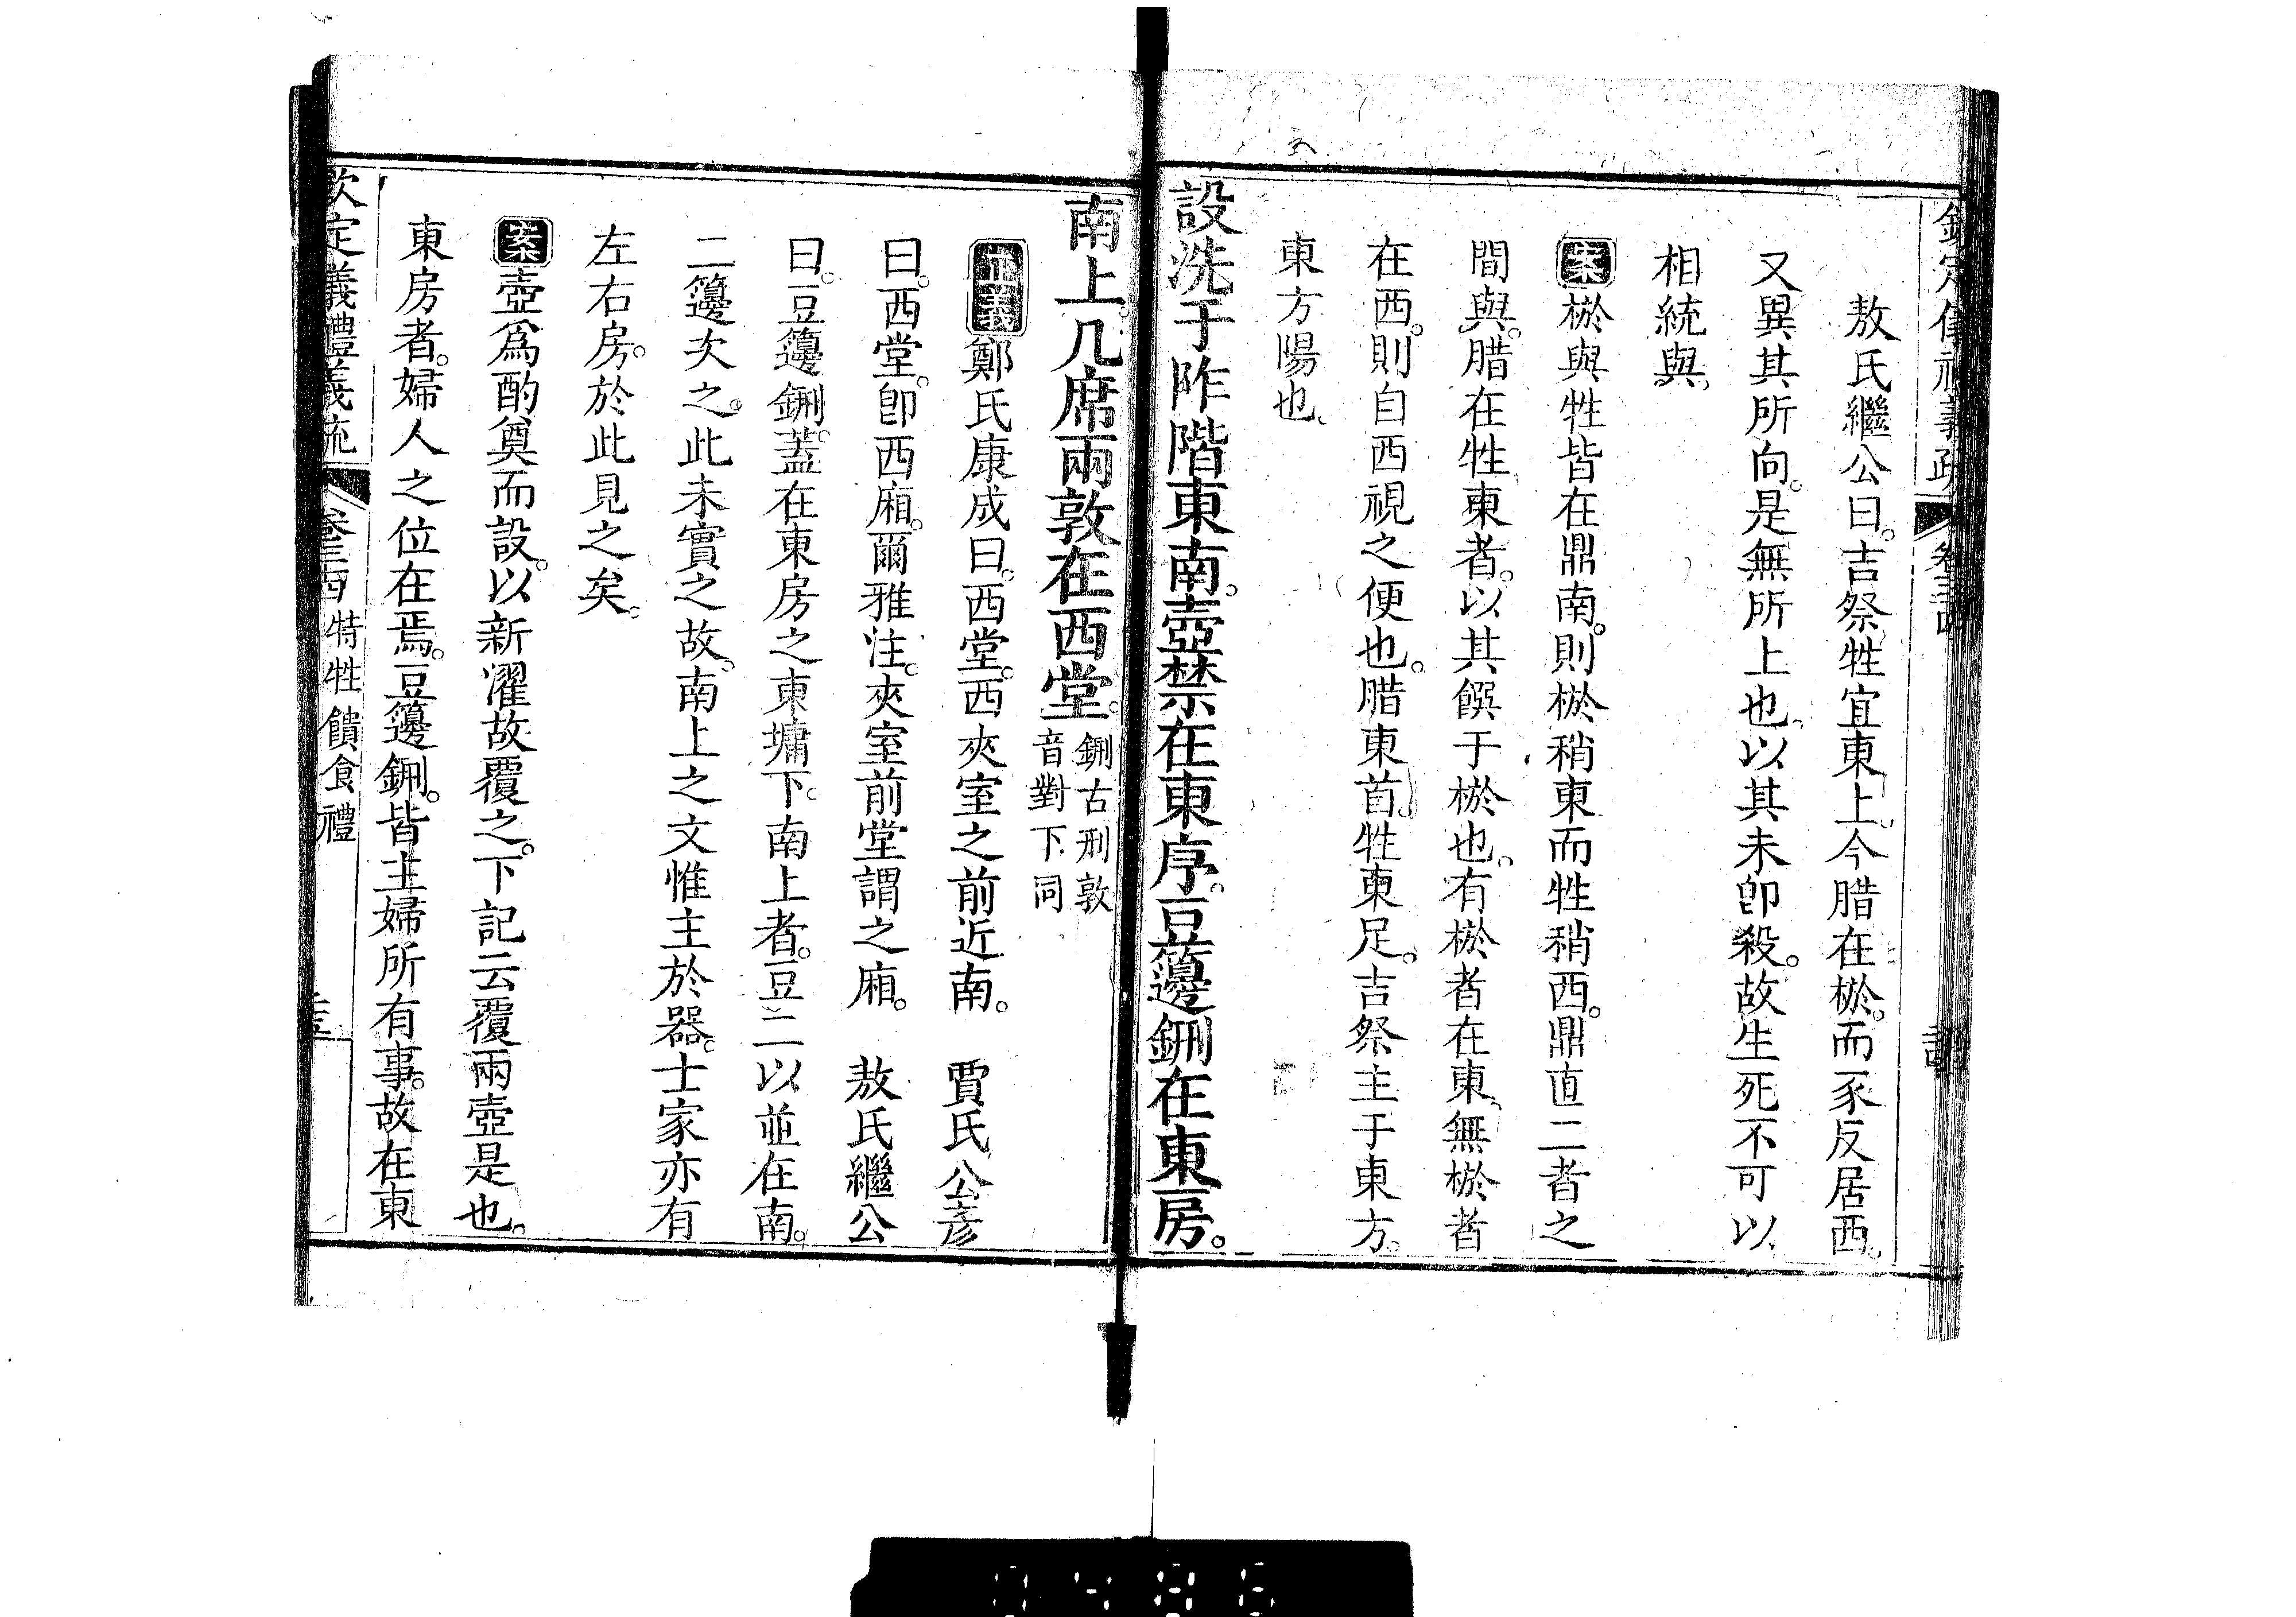 敖氏繼公曰。吉祭牲宜東上。今腊在棜。而豕反居西。
又異其所向。是無所上也。以其未卽殺。故生死不可以
相統與。
案棜與牲皆在鼎南。則棜稍東而牲稍西。鼎直二者之
間與。腊在牲東者。以其饌于棜也。有棜者在東、無棜者
在西。則自西視之便也。腊東首。牲東足。吉祭主于東方。
東方陽也。
設洗于阼階東南。壺禁在東序。豆籩鉶在東房。
南上。几席兩敦在西堂。鉶古刑敦
音對下同
正義鄭氏康成曰。西堂。西夾室之前近南。　賈氏公彥
曰。西堂。卽西廂。爾雅注。夾室前堂謂之廂。　敖氏繼公
曰。豆籩鉶。蓋在東房之東墉下。南上者。豆二以並在南。
二籩次之。此未實之故。南上之文惟主於器。士家亦有
左右房。於此見之矣。
案壺爲酌奠而設。以新濯故覆之。下記云覆兩壺是也。
東房者。婦人之位在焉。豆籩鉶。皆主婦所有事。故在東
欽定義禮義疏　卷三四　特牲饋食禮